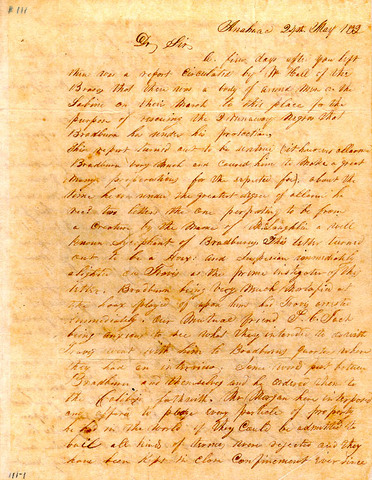 Anahuac 24th May 1832
Dr Sir,
A few days after you left
there was a report circulated by Wm Hall of the
Brazos that there was a body of armed Men on the
Sabine on their March to this place for the
purpose of rescuing the 2 Runaway Negros that
Bradburn has under his protection.
This report turned out to be
Bradburn very Much and caused him to Make a great
Many preparations for the expected foe, about the
time he was under the greatest degree of alarm he
the one purporting to be from
a by the Name of McLaughlin a well
known of Bradburns This letter turned
out to be a Hoax and Suspicion immediately
alighted on Travis as the prime instigator of the
letter. Bradburn being very Much
the hoax played of upon him had Travis arrested
immediately, our Mutual friend P. C. Jack
being anxious to see what they intended to do with
Travis went with him to Bradburns quarters where
they had an interview; Some words past between
Bradburn and themselves and he ordered them to
the forthwith. Mr Morgan
and offered to pledge every particle of property
he had in the world if they could be admitted to
bail all kind of terms were rejected and they
have been kept in close confinement ever since